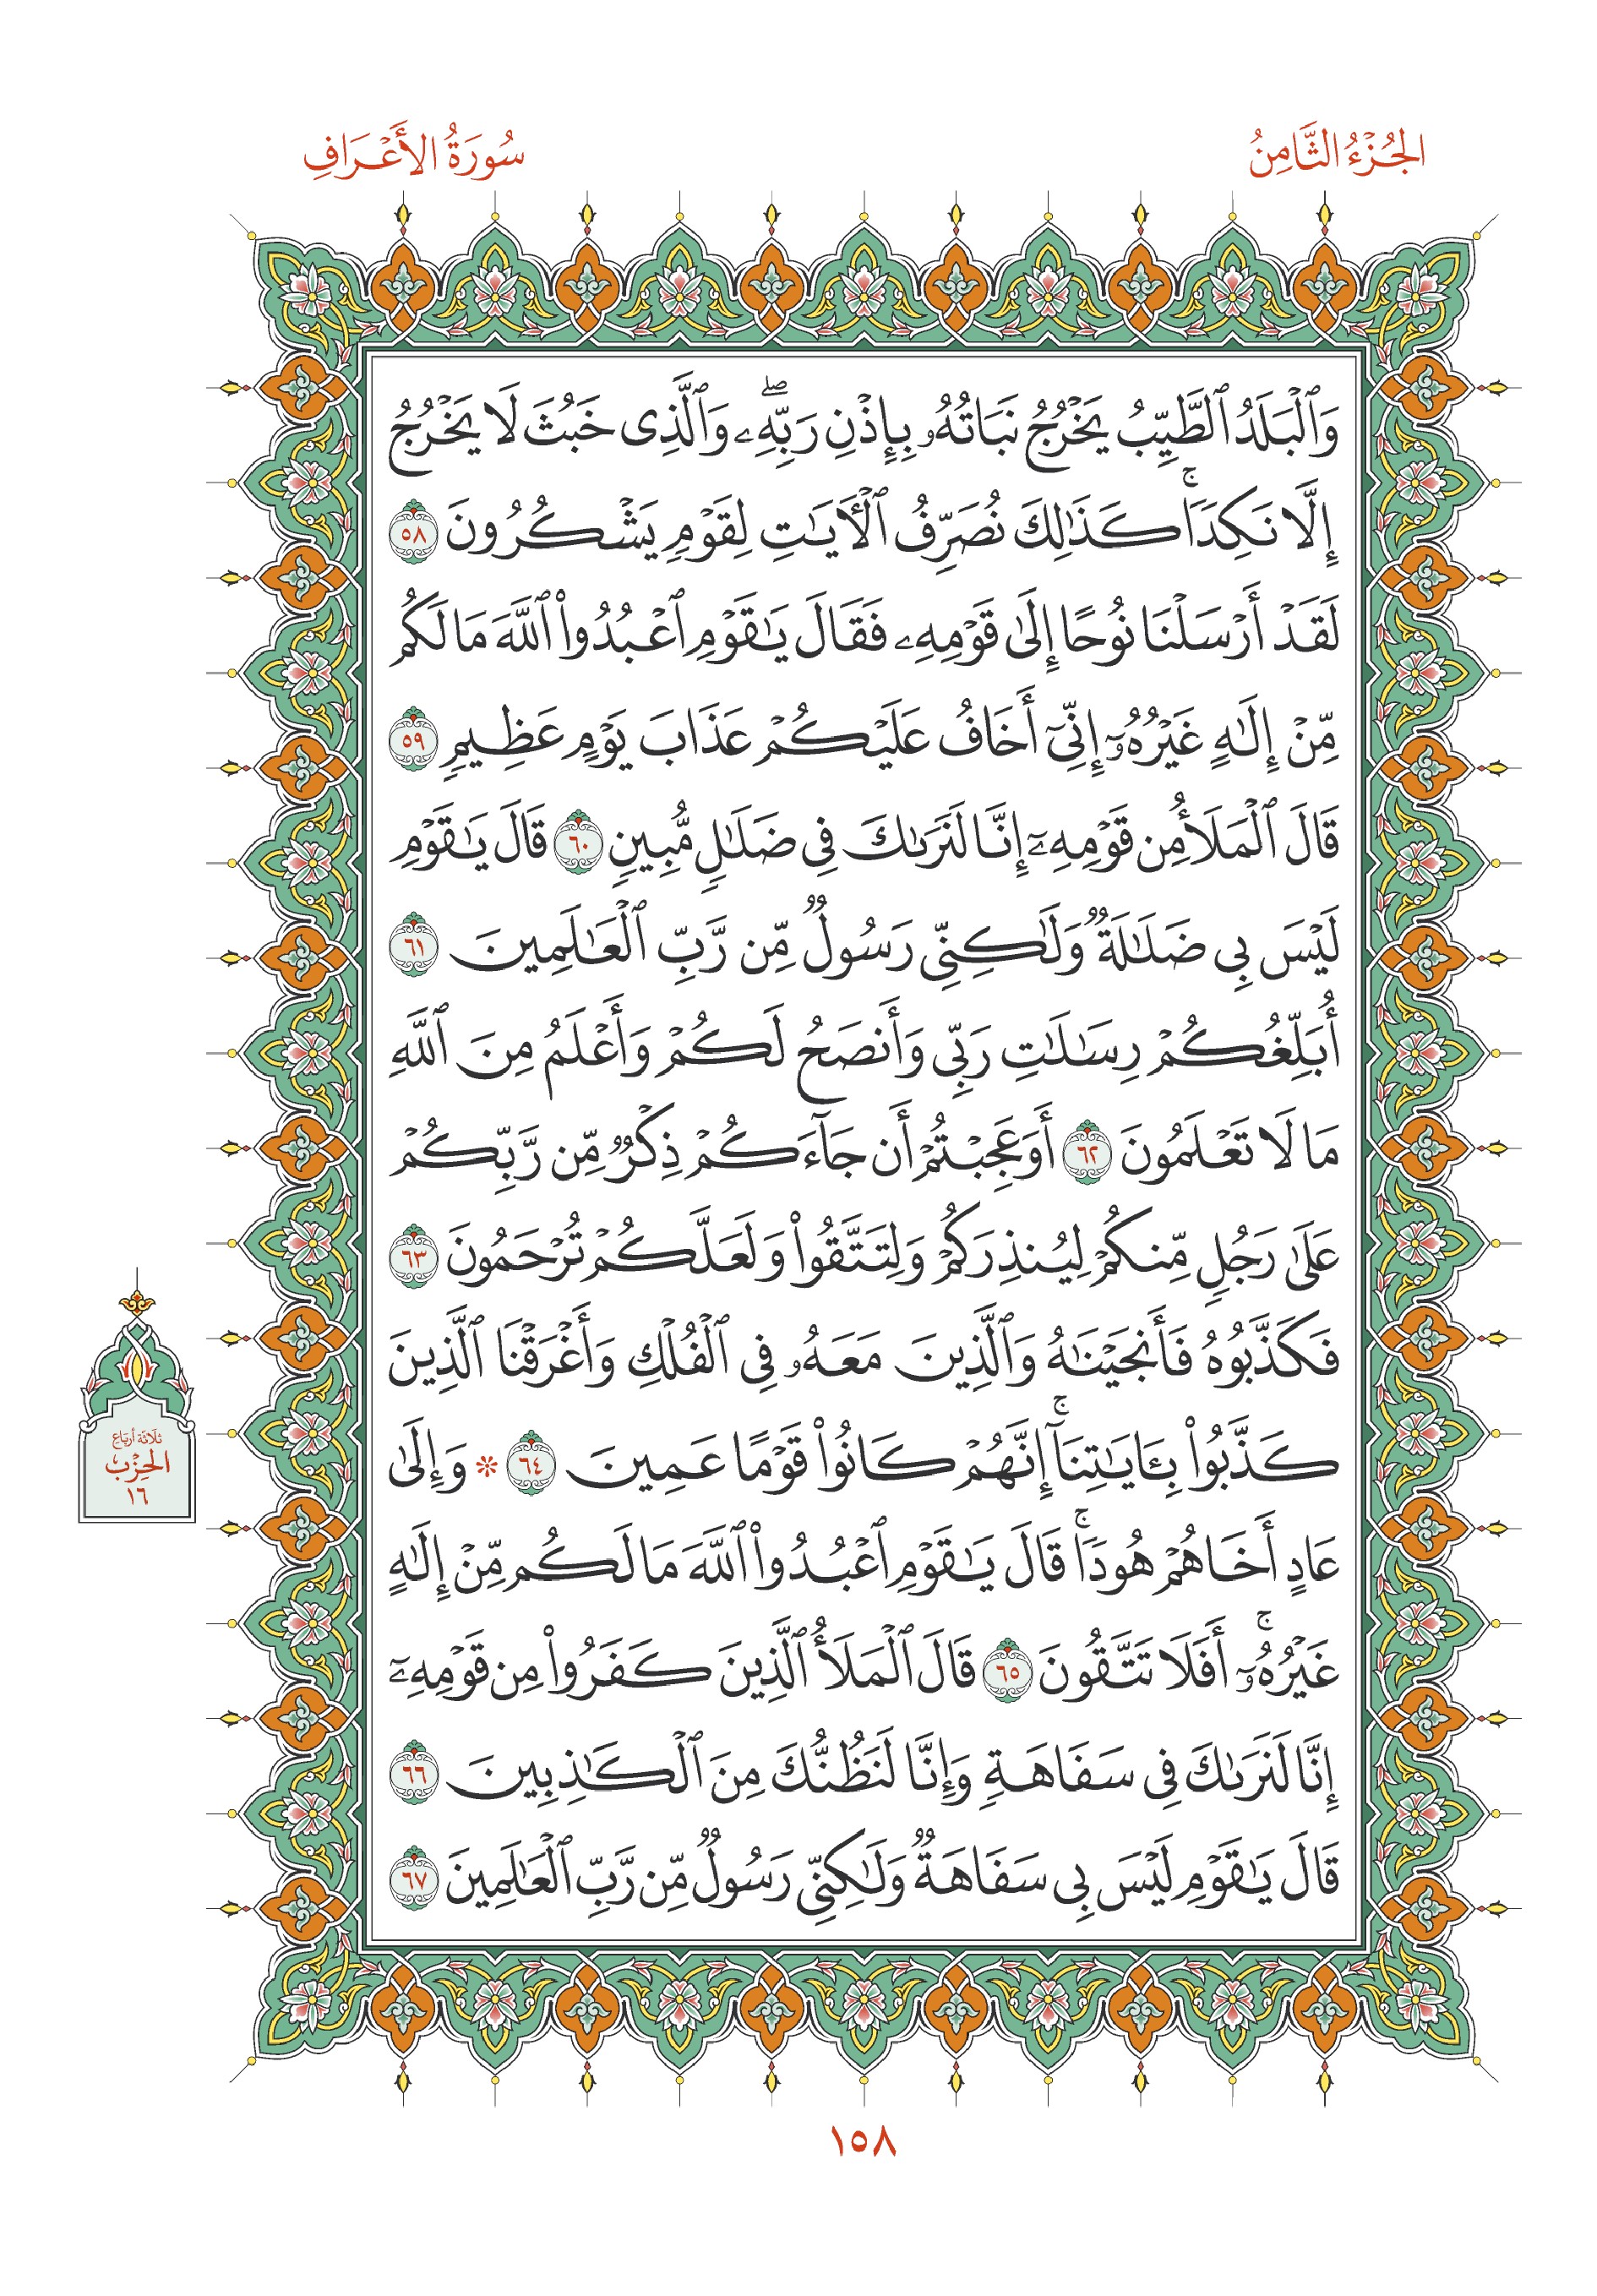 الجُزْءُ الثَّامِنُ
سُورَةُ الأَعْرَافِ
وَٱلْبَلَدُ ٱلطَّيِّبُ يَخْرُجُ نَبَاتُهُۥ بِإِذْنِ رَبِّهِۦۖ وَٱلَّذِى خَبُثَ لَا يَخْرُجُ
إِلَّا نَكِدًاۚ كَذَٰلِكَ نُصَرِّفُ ٱلْـَٔايَـٰتِ لِقَوْمٍ يَشْكُرُونَ ٥٨
لَقَدْ أَرْسَلْنَا نُوحًا إِلَىٰ قَوْمِهِۦ فَقَالَ يَـٰقَوْمِ ٱعْبُدُوا۟ ٱللَّهَ مَا لَكُم
مِّنْ إِلَـٰهٍ غَيْرُهُۥٓ إِنِّىٓ أَخَافُ عَلَيْكُمْ عَذَابَ يَوْمٍ عَظِيمٍ ٥٩
قَالَ ٱلْمَلَأُ مِن قَوْمِهِۦٓ إِنَّا لَنَرَىٰكَ فِى ضَلَـٰلٍ مُّبِينٍ ٦٠ قَالَ يَـٰقَوْمِ
لَيْسَ بِى ضَلَـٰلَةٌ وَلَـٰكِنِّى رَسُولٌ مِّن رَّبِّ ٱلْعَـٰلَمِينَ ٦١
أُبَلِّغُكُمْ رِسَـٰلَـٰتِ رَبِّى وَأَنصَحُ لَكُمْ وَأَعْلَمُ مِنَ ٱللَّهِ
مَا لَا تَعْلَمُونَ ٦٢ أَوَعَجِبْتُمْ أَن جَآءَكُمْ ذِكْرٌ مِّن رَّبِّكُمْ
عَلَىٰ رَجُلٍ مِّنكُمْ لِيُنذِرَكُمْ وَلِتَتَّقُوا۟ وَلَعَلَّكُمْ تُرْحَمُونَ ٦٣
فَكَذَّبُوهُ فَأَنجَيْنَـٰهُ وَٱلَّذِينَ مَعَهُۥ فِى ٱلْفُلْكِ وَأَغْرَقْنَا ٱلَّذِينَ
كَذَّبُوا۟ بِـَٔايَـٰتِنَآۚ إِنَّهُمْ كَانُوا۟ قَوْمًا عَمِينَ ٦٤ * وَإِلَىٰ
عَادٍ أَخَاهُمْ هُودًاۚ قَالَ يَـٰقَوْمِ ٱعْبُدُوا۟ ٱللَّهَ مَا لَكُم مِّنْ إِلَـٰهٍ
غَيْرُهُۥٓۚ أَفَلَا تَتَّقُونَ ٦٥ قَالَ ٱلْمَلَأُ ٱلَّذِينَ كَفَرُوا۟ مِن قَوْمِهِۦٓ
إِنَّا لَنَرَىٰكَ فِى سَفَاهَةٍ وَإِنَّا لَنَظُنُّكَ مِنَ ٱلْكَـٰذِبِينَ ٦٦
قَالَ يَـٰقَوْمِ لَيْسَ بِى سَفَاهَةٌ وَلَـٰكِنِّى رَسُولٌ مِّن رَّبِّ ٱلْعَـٰلَمِينَ ٦٧
ثلاثة أرباع
الحِزْب
١٦
١٥٨